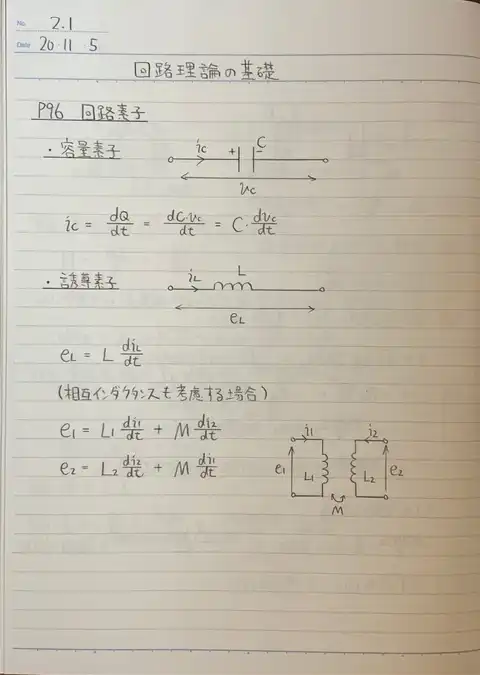 No. 2.1
Date 20・11・5
回路理論の基礎
P96 回路素子
・容量素子
ic + - C
vc
ic = dQ/dt = dC・vc/dt = C・dvc/dt
・誘導素子
iL L
eL
eL = L diL/dt
(相互インダクタンスも考慮する場合)
e1 = L1 di1/dt + M di2/dt
e2 = L2 di2/dt + M di1/dt
i1 i2
e1 L1 L2 e2
M